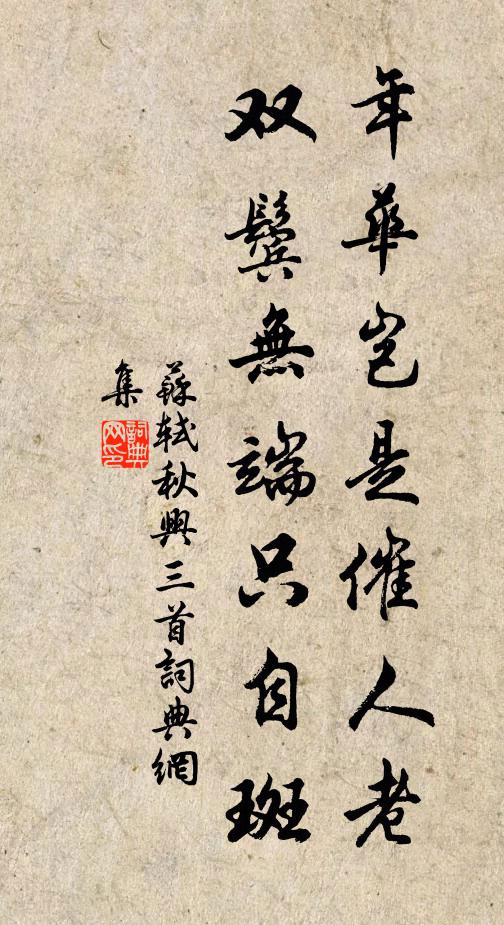 年華豈是催人老
双鬓無端只自斑
蘇軾秋興三首詞典網
集
詞典
网印